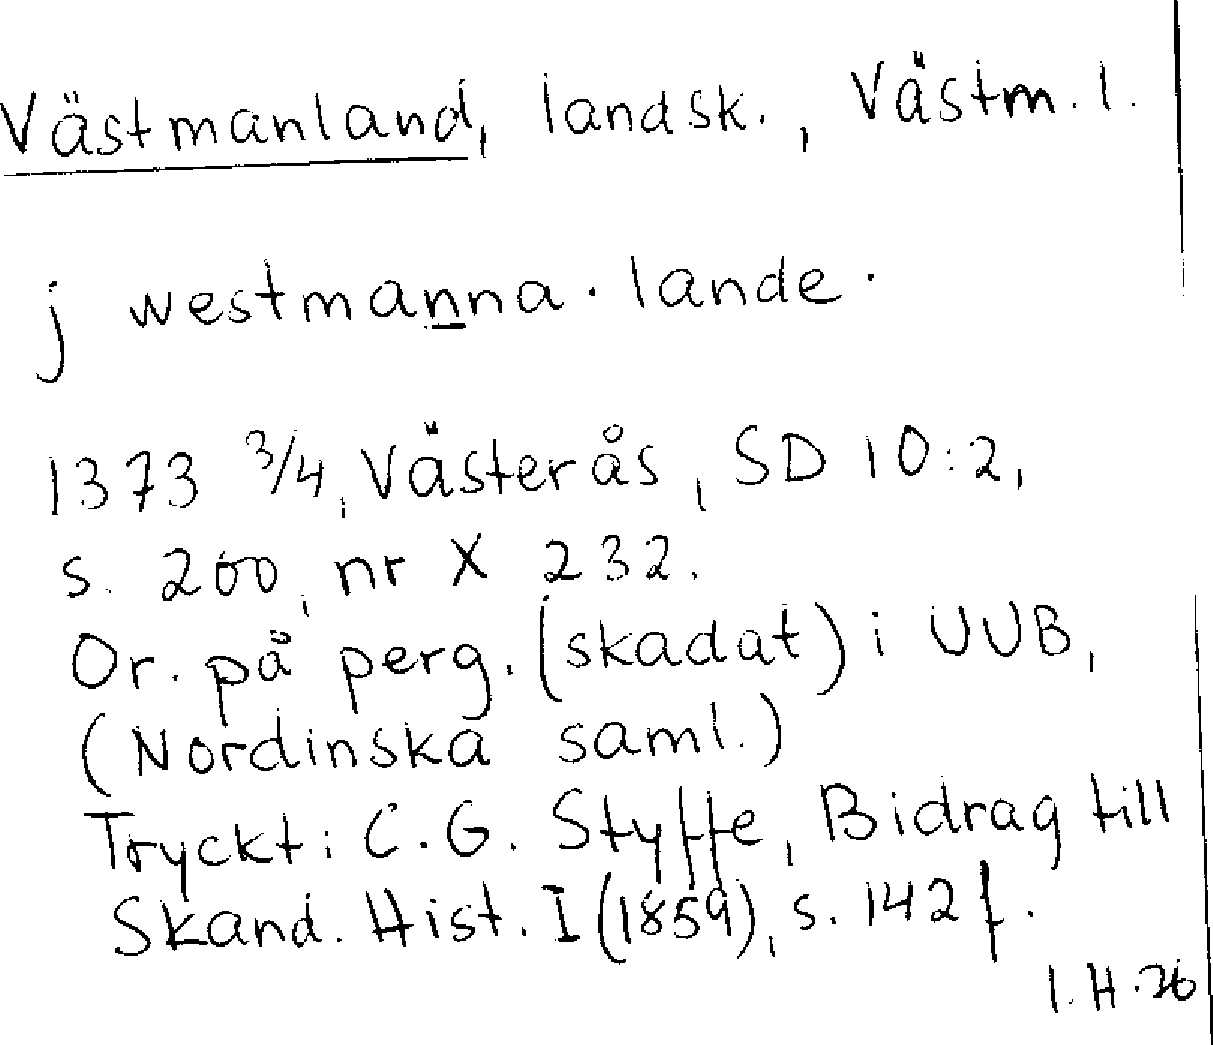 Västmanland, landsk., Västm. l.
j westmanna. lande.
1373 3/4, Västerås, SD 10:2,
s. 200, nr X 232.
Or. på perg. (skadat) i UUB,
(Nordinska saml.)
Tryckt: C.G. Styffe, Bidrag till
Skand. Hist. I (1859), s. 142 f.
I.H. 76